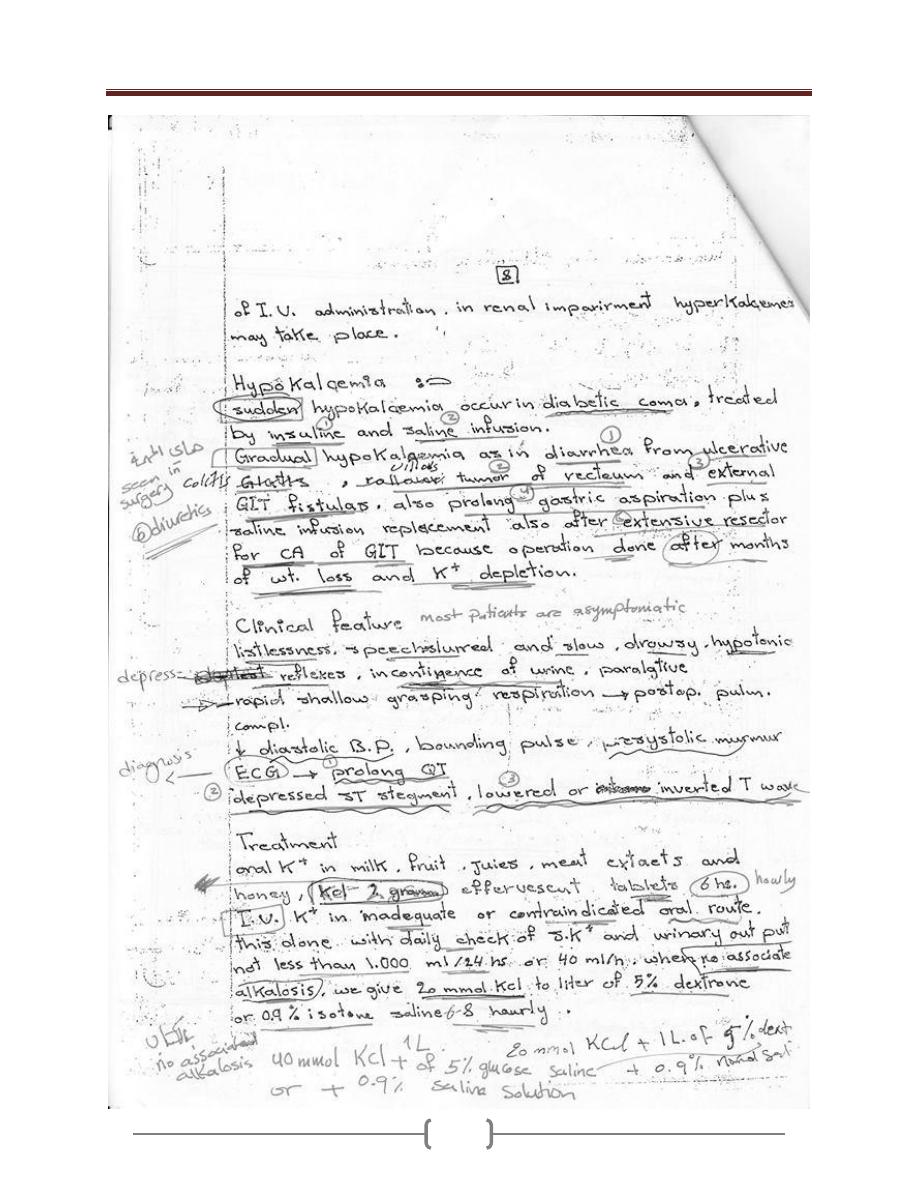 8
of I.V. administration. in renal imparirment hyperKalcemea
may take place.
HypoKalcemia :
sudden hypoKalcemia occur in diabetic coma, treated
by insuline ① and saline ② infusion.
Gradual hypoKalcemia as in diarrhea ① from ulcerative
seen in
surgery
colitis , villous tumor ② of recteum and ③ external
GIT fistulas, also prolong ④ gastric aspiration plus
⑥ diuretics
saline infusion replecement also after extensive resector
for CA of GIT because operation done after months
of wt. loss and K+ depletion.
Clinical feature most patients are asymptomatic
listlessness, speech slurred and slow, drowsy, hypotonic
depress reflexes, incontinence of urine, paralytive
rapid shallow grasping respiration → postop. pulm.
compl.
↓ diastolic B.P., bounding pulse, presystolic murmur
diagnosis
ECG → ① prolong QT
② depressed ST stegment, ③ lowered or inverted T wave
Treatment
oral K+ in milk, fruit, juies, meat extaets and
honey, Kcl 2 grams effervescent tablets 6 hs. hourly
I.V. K+ in inadequate or contraindicated oral route.
this done with daily check of S.K+ and urinary out put
not less than 1.000 ml/24 hs or 40 ml/h, when no associate
alkalosis, we give 20 mmol Kcl to liter of 5% dextrone
or 0.9% isotone saline 6-8 hourly.
no associated
alkalosis
40 mmol KCl + 1L of 5% glucose saline
or + 0.9% saline solution
20 mmol KCl + 1L of 5% dext
+ 0.9%